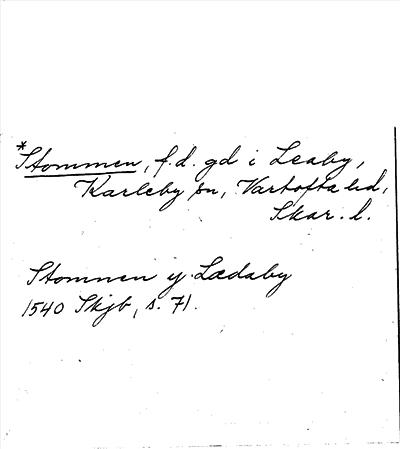 *Stommen, f.d. gd i Leaby,
Karleby sn, Vartofta hd,
Skar. l.
Stomnen y Lædaby
1540 Skjb, s. 71.